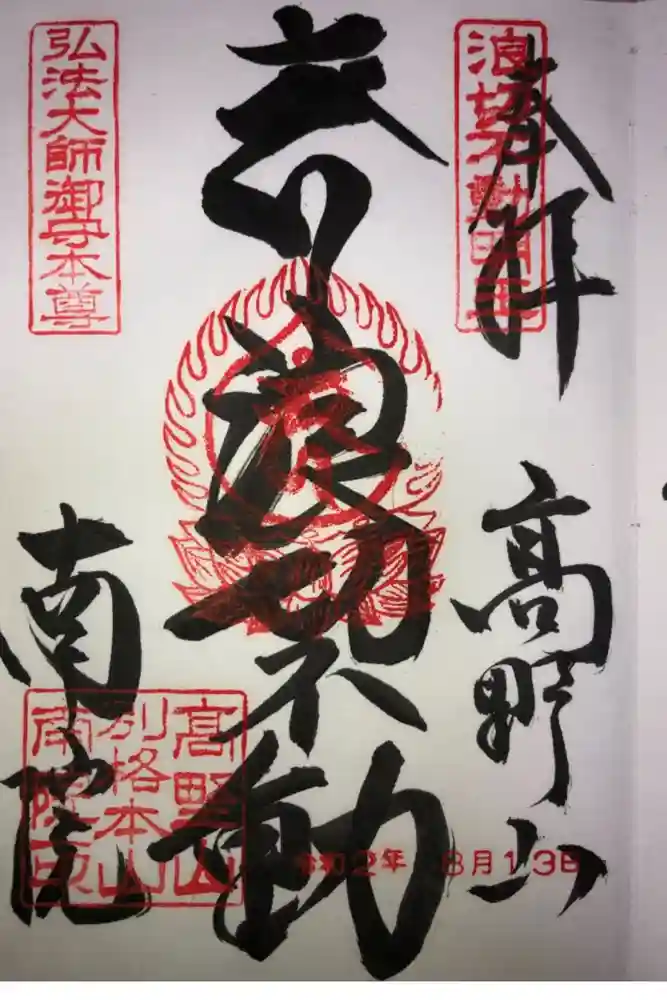 奉拝
浪切不動明王
高野山
浪切不動
令和2年 8月13日
弘法大師御守本尊
南院
高野山
別格本山
南院印